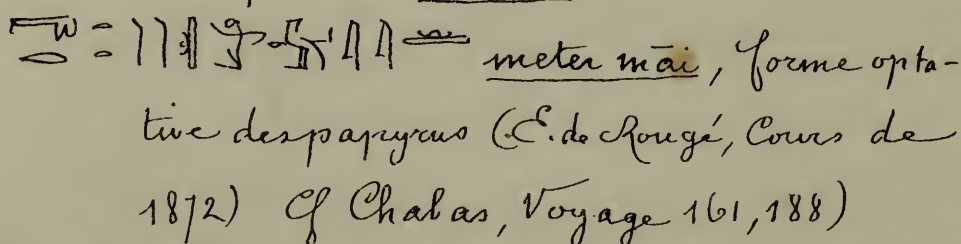 meter māi, forme opta-
tive des papyrus (E. de Rougé, Cours de
1872) Cf Chabas, Voyage 161, 188)